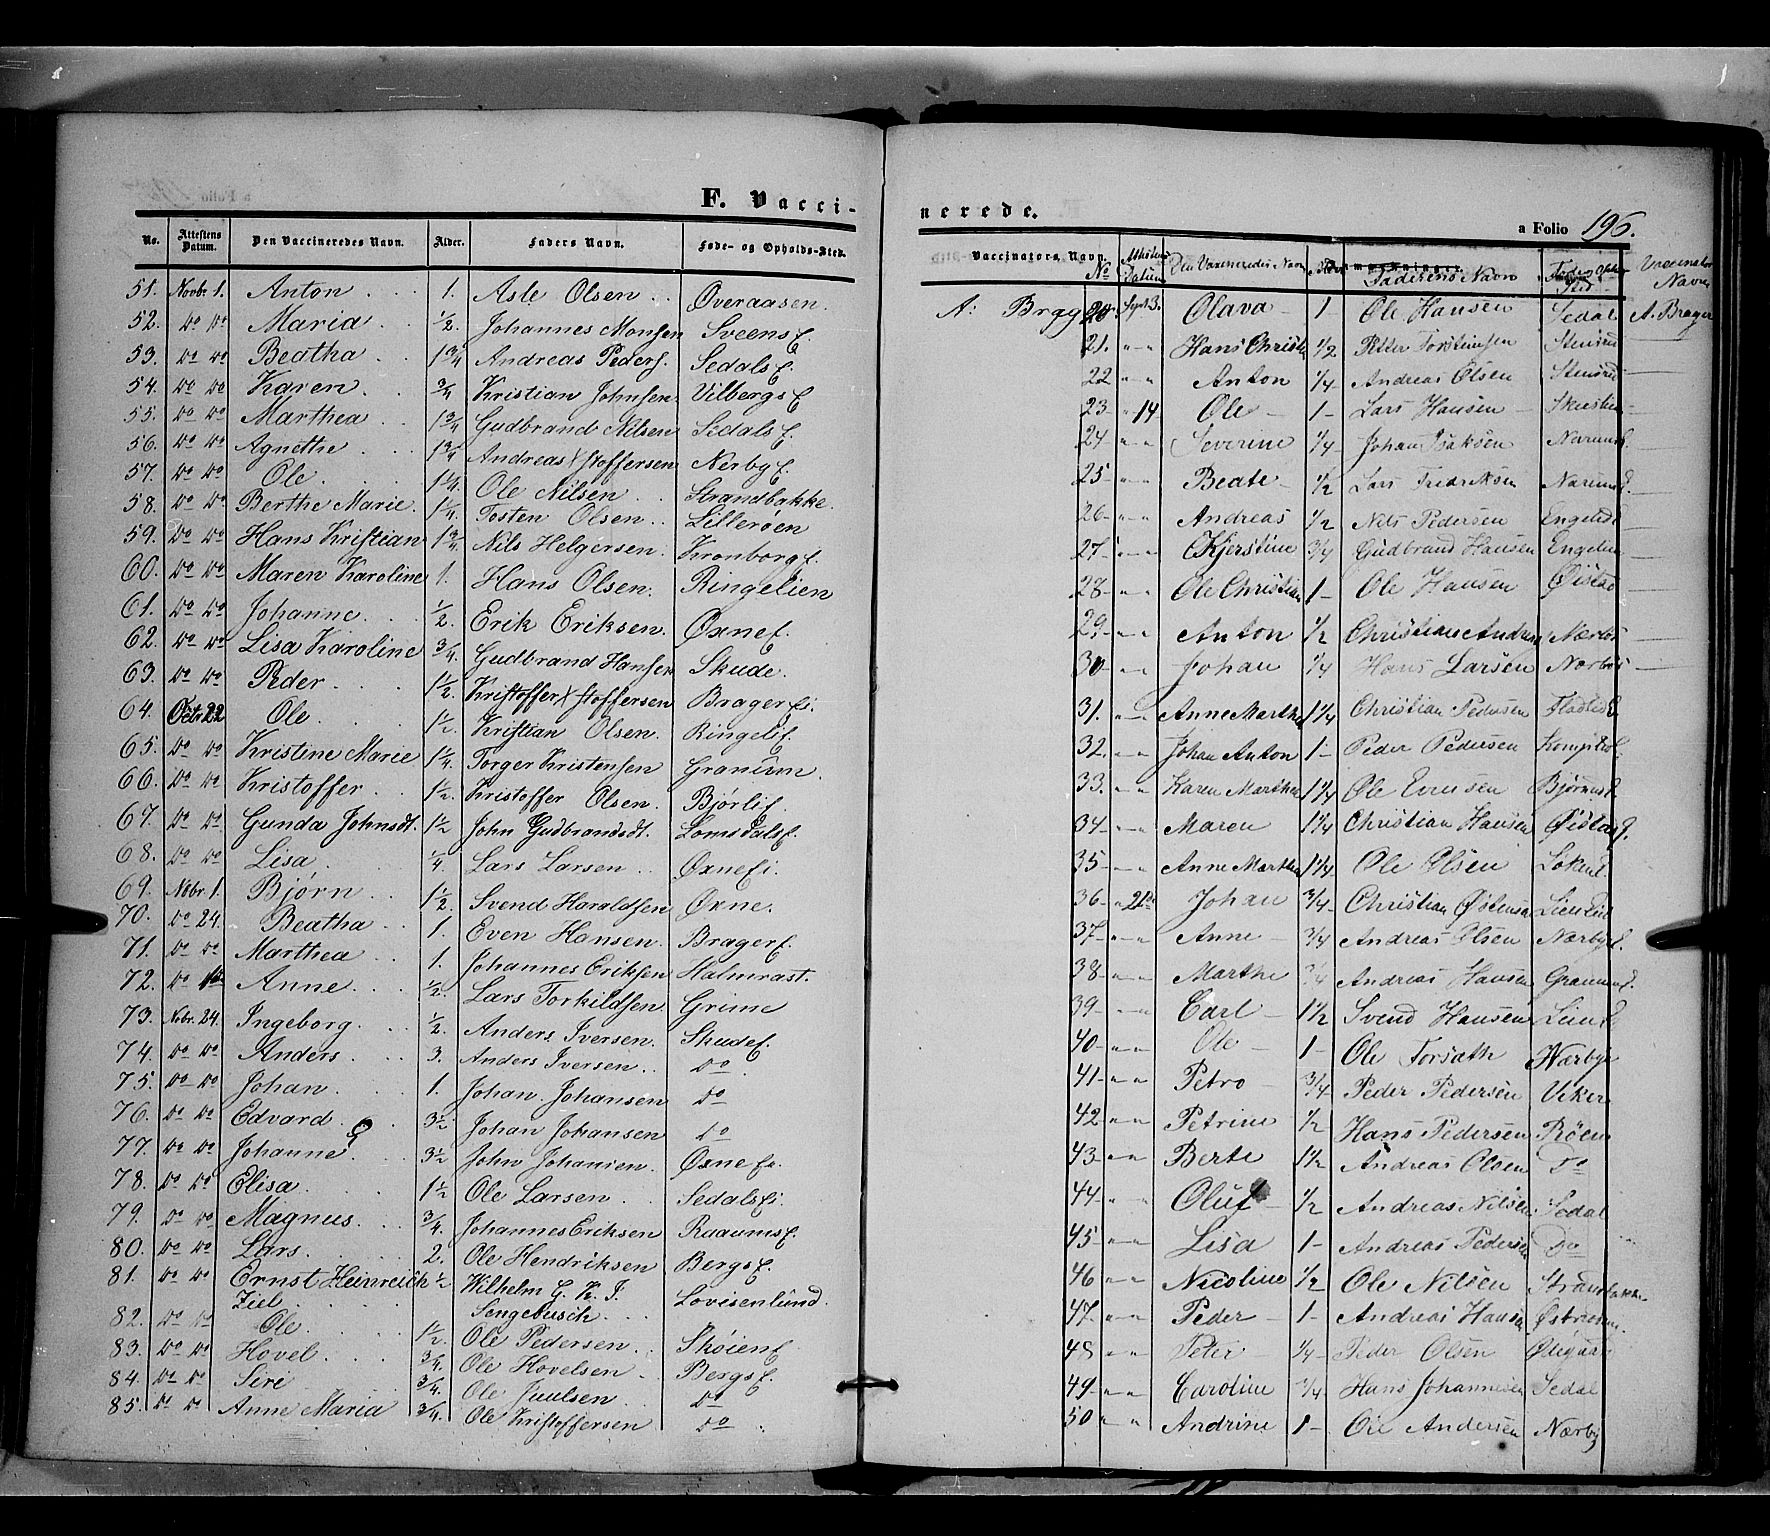 F. Vacci-
No. Attestens Datum. Den Vaccineredes Navn. Alder. Faders Navn. Føde- og Opholds-Sted.
51. Novbr. 1. Anton 1. Asle Olsen Overaasen
52. do do Maria 1/2. Johannes Monsen Sveens E.
53. do do Beatha 1 3/4 Andreas Peders. Sedals E.
54. do do Karen 3/4 Kristian Johnsen Vilbergs E
55. do do Marthea 1 3/4 Gudbrand Nilsen Sedals E.
56. do do Agnethe 1 3/4 Andreas Xstoffersen Nerby E.
57. do do Ole 1 1/4. Ole Nilsen Strandbakke.
58. do do Berthe Marie. 1 1/4. Tosten Olsen Lillerøen
59. do do Hans Kristian 1 3/4. Nils Helgersen. Kronborg E.
60. do do Maren Karoline 1. Hans Olsen. Ringelien
61. do do Johanne 1/2. Erik Eriksen. Oxne E.
62. do do Lisa Karoline 3/4. Gudbrand Hansen Skude.
63. do do Peder 1 1/2. Kristoffer Xstoffersen Brager Ei.
64. Octr 22 Ole 1 1/2. Kristian Olsen. Ringeli E.
65. do do Kristine Marie 1 1/4. Torger Kristensen Granum.
66. do do Kristoffer 1 1/2. Kristoffer Olsen. Bjørli E.
67. do do Gunda Johnsdt. 1 1/2 John Gudbrandsdt. Lomsdals E.
68. do do Lisa. 1/4. Lars Larsen Oxne Ei.
69. Nobr. 1. Bjørn 1 1/2. Svend Haraldsen Oxne.
70. do 24. Beatha 1. Even Hansen. Brager E.
71. do do Marthea 1. Johannes Eriksen Halmrast.
72. do Anne. 1/2. Lars Torkildsen Grime
73. Nobr. 24. Ingeborg. 1/2. Anders Iversen. Skude E.
74. do do Anders. 3. Anders Iversen do
75. do do Johan. 1. Johan Johansen do
76. do do Edvard. 3 1/2 Johan Johansen do
77. do do Johanne 3 1/2 John Johansen. Oxne E.
78. do do Elisa. 1 1/2 Ole Larsen Sedals Ei.
79. do do Magnus. 3/4. Johannes Eriksen Raaums E.
80. do do Lars. 2. Ole Hendriksen Bergs E.
81. do do Ernst Heinreich 1/2 Wilhelm G. K. J. Lovisenlund.
Ziel. Sengebusch
82. do do Ole 1 1/2. Ole Pedersen. Skøien E
83. do do Hovel. 3/4. Ole Hovelsen Bergs E.
84. do do Siri 3/4. Ole Juulsen do
85. do do Anne Maria 3/4. Ole Kristoffersen do
nerede.
a Folio 196.
Vaccinators Navn. No Attestens Datum Den Vaccineredes Navn Alder Faderens Navn Vaccinators Navn
A. Brager 20 Septr 3. Olava 1 Ole Hansen Sedal A. Brager
21. " " Hans Christ 1/2 Petter Torsteinsen Stensrud
22 " " Anton 1/4 Andreas Olsen Stensrud
23 " 14 Ole 1 Lars Hansen
24 " " Severine 1/4 Johan Isaksen
25 " " Beate 1/2 Lars Fredriksen
26 " " Andreas 1/2 Nils Pedersen
27 " " Kjerstine 3/4 Gudbrand Hansen Engelien
28 " " Ole Christian 1 Ole Hansen Øistad
29 " " Anton 1/2 Christian Andreas Nærbø
30 " " Johan 1/4 Hans Larsen Nærbø
31. " " Anne Marthe 1 1/4 Christian Pedersen
32. " " Johan Anton 1 Peder Pedersen
33. " " Karen Marthea 1 1/4 Ole Evensen
34 " " Maren 1 1/4 Christian Hansen Øistad E.
35 " " Anne Marthea 1 1/4 Ole Olsen
36 " 21de Johan 3/4 Christian Østensen
37 " " Anne 3/4 Andreas Olsen Nærby E.
38 " " Marthe Andreas Hansen
39 " " Carl 1 1/2 Svend Hansen Lien E
40 " " Ole 1 Ole Torsath Nærby
41 " " Petro 3/4 Peder Pedersen
42 " " Petrine 1/2 Hans Pedersen Røen
43 " " Berte 1 1/2 Andreas Olsen do
44 " " Oluf 1/2 Andreas Nilsen Sedal
45 " " Lisa 1 Andreas Pedersen do
46 " " Nicoline 1/2 Ole Nilsen Strandbakke
47 " " Peder 1 Andreas Hansen
48 " " Peter 1/4 Peder Olsen
49 " " Caroline 3/4 Hans Johannesen Sedal
50 " " Andrine 1 Ole Andersen Nærby